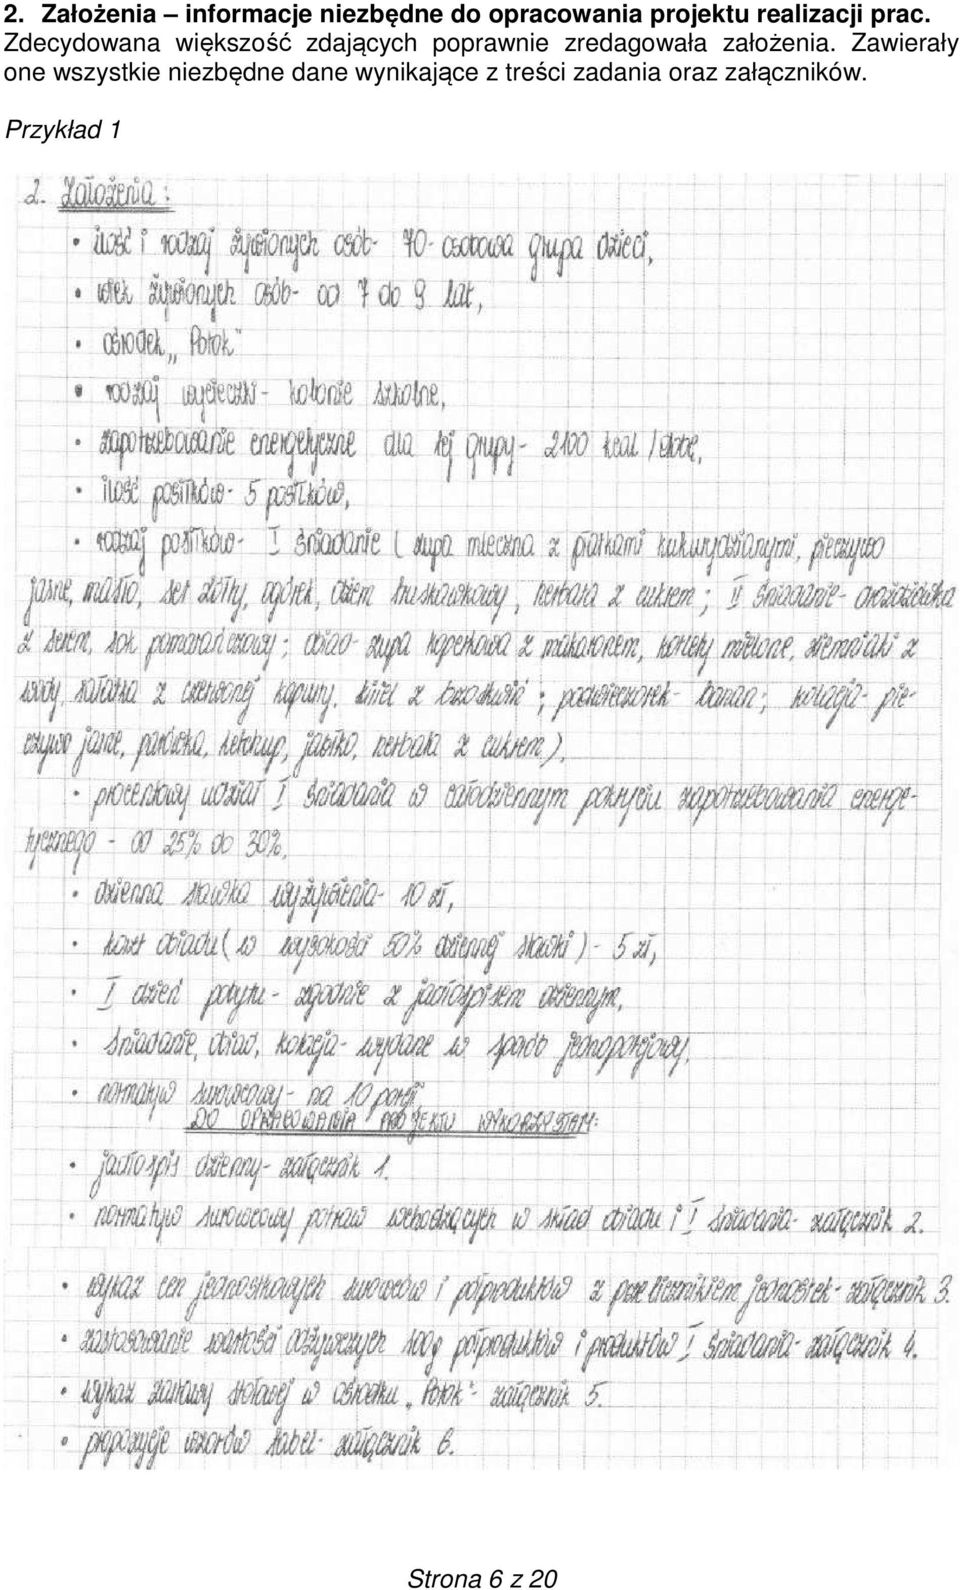 2. Założenia – informacje niezbędne do opracowania projektu realizacji prac.
Zdecydowana większość zdających poprawnie zredagowała założenia. Zawierały
one wszystkie niezbędne dane wynikające z treści zadania oraz załączników.
Przykład 1
2. Założenia:
• ilość i rodzaj żywionych osób- 70- osobowa grupa dzieci,
• wiek żywionych osób- od 7 do 9 lat,
• ośrodek „Potok"
• rodzaj wycieczki- kolonie szkolne,
• zapotrzebowanie energetyczne dla tej grupy- 2100 kcal/dobę,
• ilość posiłków- 5 posiłków,
• rodzaj posiłków- I śniadanie (zupa mleczna z płatkami kukurydzianymi, pieczywo
jasne, masło, ser żółty, ogórek, dżem truskawkowy, herbata z cukrem; II śniadanie- drożdżówka
z serem, sok pomarańczowy; obiad- zupa koperkowa z makaronem, kotlety mielone, ziemniaki z
wody, sałatka z czerwonej kapusty, kisiel z brzoskwiń; podwieczorek- banan; kolacja- pie-
czywo jasne, parówka, ketchup, jabłko, herbata z cukrem),
• procentowy udział I śniadania w całodziennym pokryciu zapotrzebowania energe-
tycznego - od 25% do 30%,
• dzienna stawka wyżywienia- 10 zł,
• koszt obiadu (w wysokości 50% dziennej stawki)- 5 zł,
• I dzień pobytu- zgodnie z jadłospisem dziennym,
• śniadanie, obiad, kolacja- wydane w sposób jednoporcjowy,
• normatyw surowcowy- na 10 porcji
DO OPRACOWANIA PROJEKTU WYKORZYSTAM:
• jadłospis dzienny- załącznik 1.
• normatyw surowcowy potraw wchodzących w skład obiadu i I śniadania- załącznik 2.
• wykaz cen jednostkowych surowców i półproduktów z przelicznikiem jednostek- załącznik 3.
• zastosowanie wartości odżywczych 100g półproduktów i produktów I śniadania- załącznik 4.
• wykaz zastawy stołowej w ośrodku „Potok"- załącznik 5.
• propozycje wzorów tabel- załącznik 6.
Strona 6 z 20